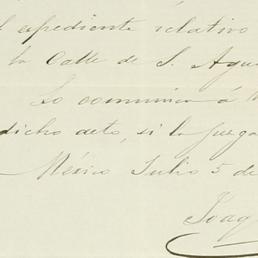 l expediente relativo
la Calle de S. Agu
Lo comunico á
dicho acto, si lo juzga
México Julio 5 de
Joaq